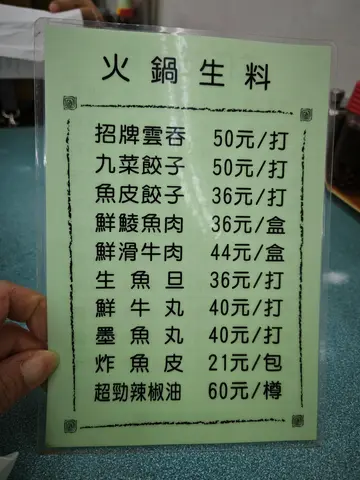 火鍋生料
招牌雲吞 50元/打
九菜餃子 50元/打
魚皮餃子 36元/打
鮮鯪魚肉 36元/盒
鮮滑牛肉 44元/盒
生魚旦 36元/打
鮮牛丸 40元/打
墨魚丸 40元/打
炸魚皮 21元/包
超勁辣椒油 60元/樽